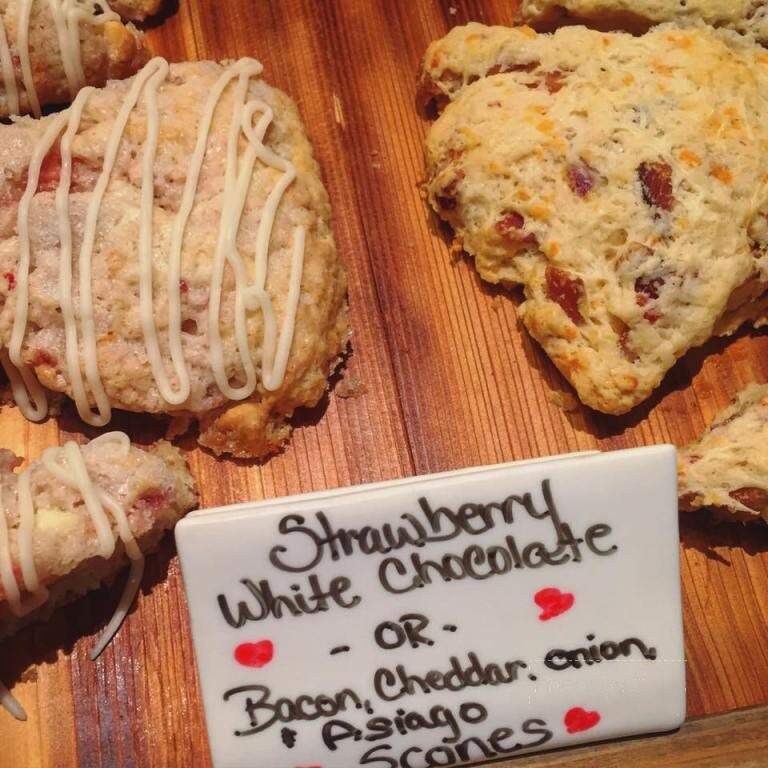 Strawberry
White Chocolate
- OR -
Bacon, Cheddar, onion,
+ Asiago
Scones